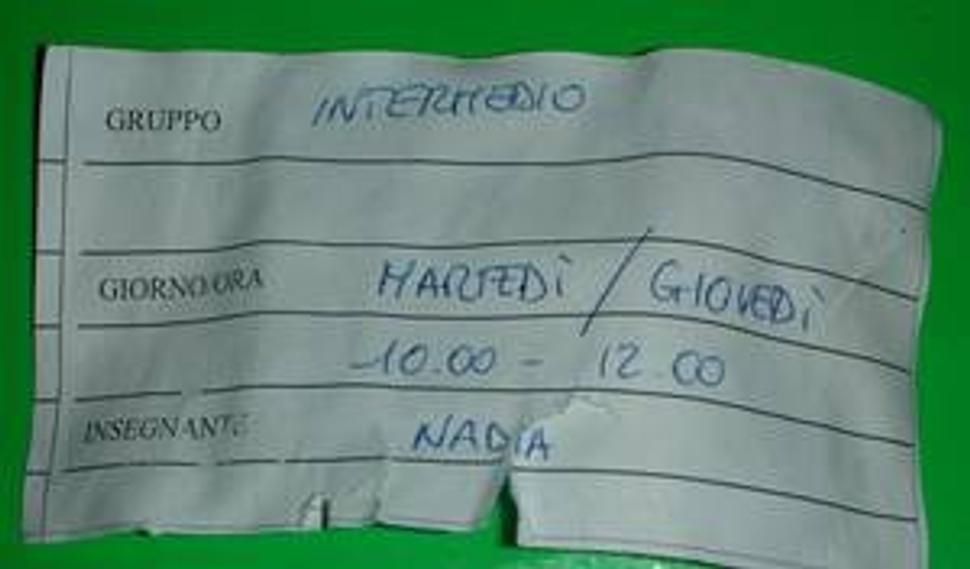 GRUPPO INTERMEDIO
GIORNO/ORA MARTEDÌ / GIOVEDÌ
10.00 - 12.00
INSEGNANTE NADIA